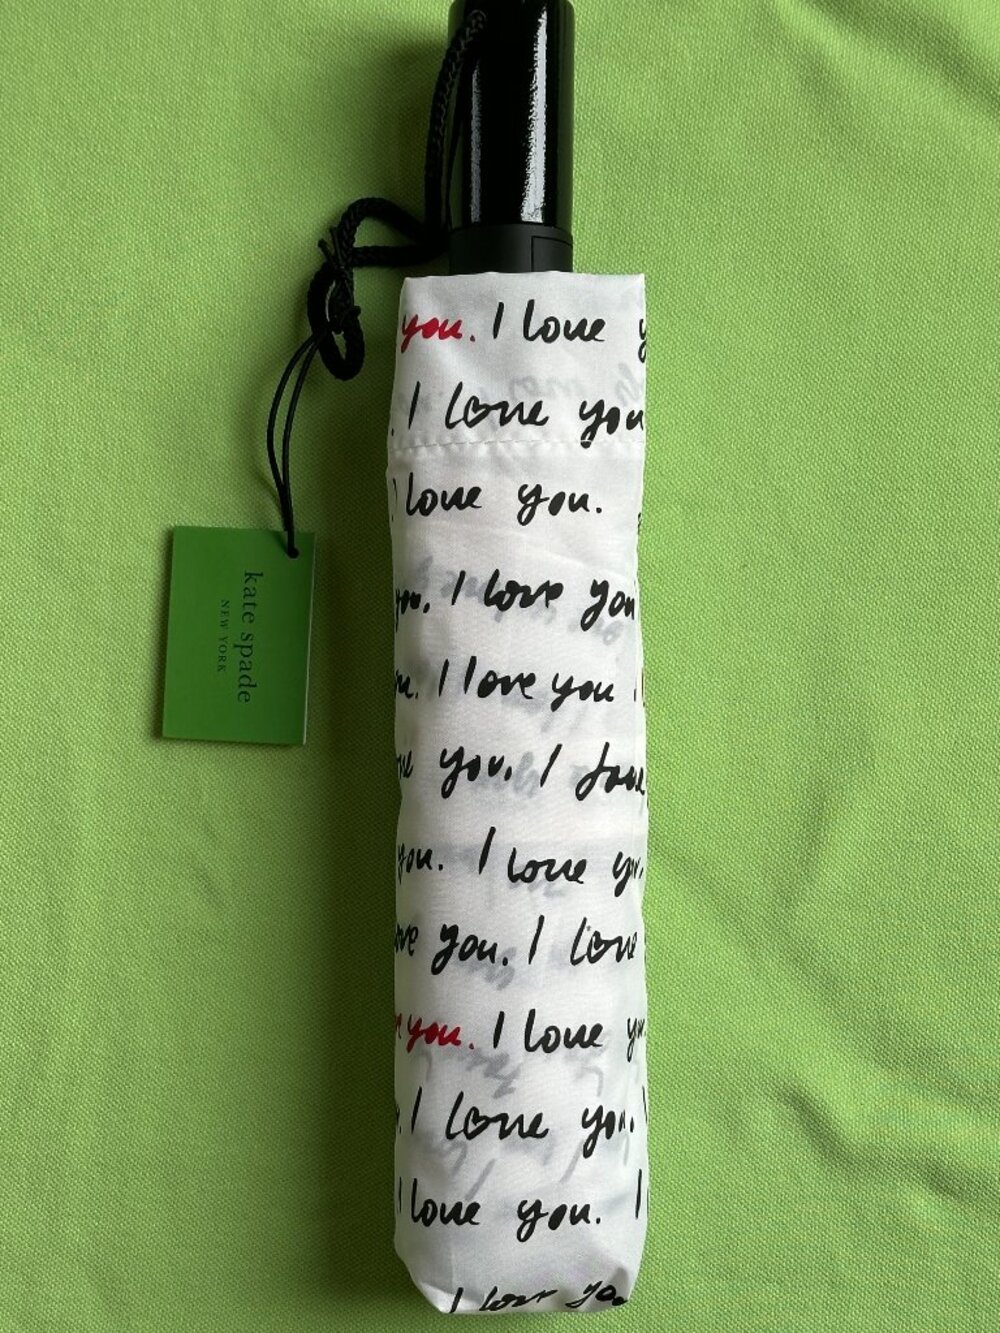 you. I love y
. I love you
I love you.
you. I love you
u. I love you.
e you. I love
you. I love yo
ove you. I love
you. I love yo
. I love you. I
I love you. I
I love you
kate spade
NEW YORK